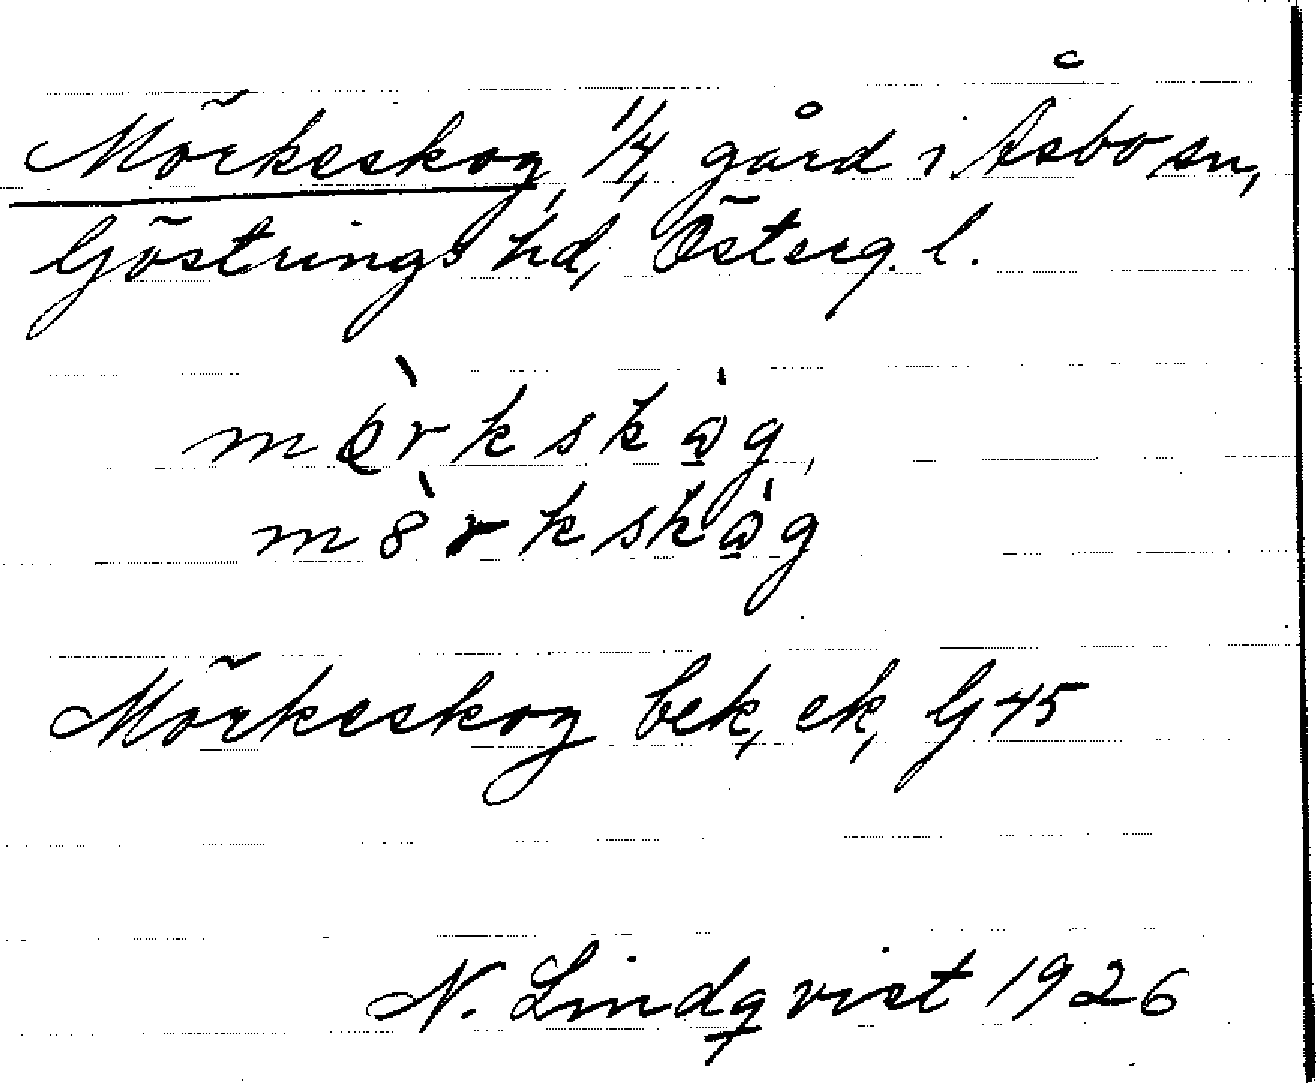 Mörkeskog, 1/4, gård i Åsbo sn,
Göstrings hd, Österg. l.
mǫ̀rkskåg,
m8̀rkskåg
Mörkeskog bek, ek, G 45
N. Lindqvist 1926